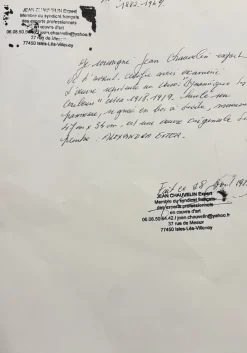 1882-1949.
JEAN CHAUVELIN Expert
Membre du syndicat français
des experts professionnels
en œuvre d'art
06.08.50.94.42 / jean.chauvelin@yahoo.fr
37 rue de Meaux
77450 Isles-Lès-Villenoy
Je soussigné Jean Chauvelin expert
d'art certifie avoir examiné
l'œuvre représentant "Dynamique des
Couleurs" 1918-1919. huile sur
panneau, signée en bas à droite, mesurant
47 34 cm. est une œuvre originale du
peintre ALEXANDRA EXTER.
Fait ce 08 Avril
JEAN CHAUVELIN Expert
Membre du syndicat français
des experts professionnels
en œuvre d'art
06.08.50.94.42 / jean.chauvelin@yahoo.fr
37 rue de Meaux
77450 Isles-Lès-Villenoy